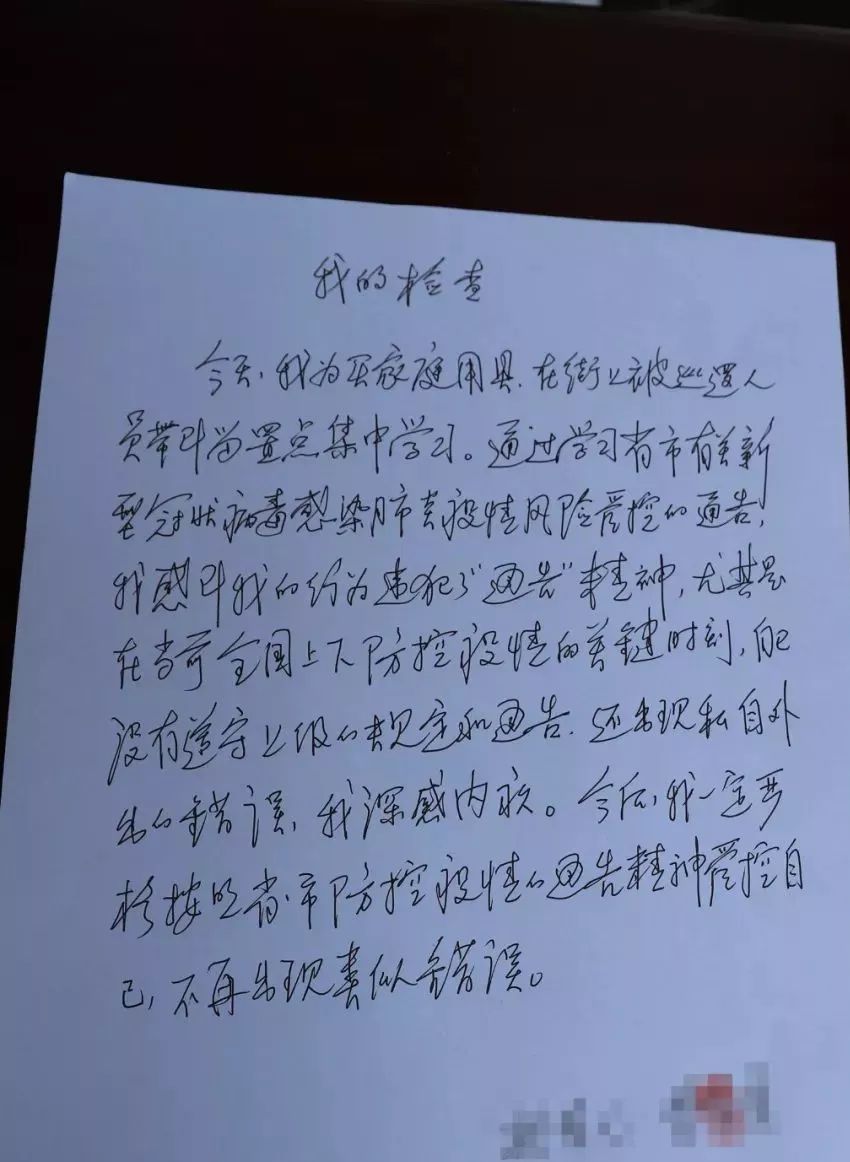 我的检查
今天,我为买家庭用具,在街上被巡逻人
员带到留置点集中学习。通过学习省市有关新
型冠状病毒感染肺炎疫情风险管控的通告,
我感到我的行为违犯了“通告”精神,尤其是
在当前全国上下防控疫情的关键时刻,自己
没有遵守上级的规定和通告,还出现私自外
出的错误,我深感内疚。今后,我一定严
格按照省、市防控疫情的通告精神管控自
己,不再出现类似错误。